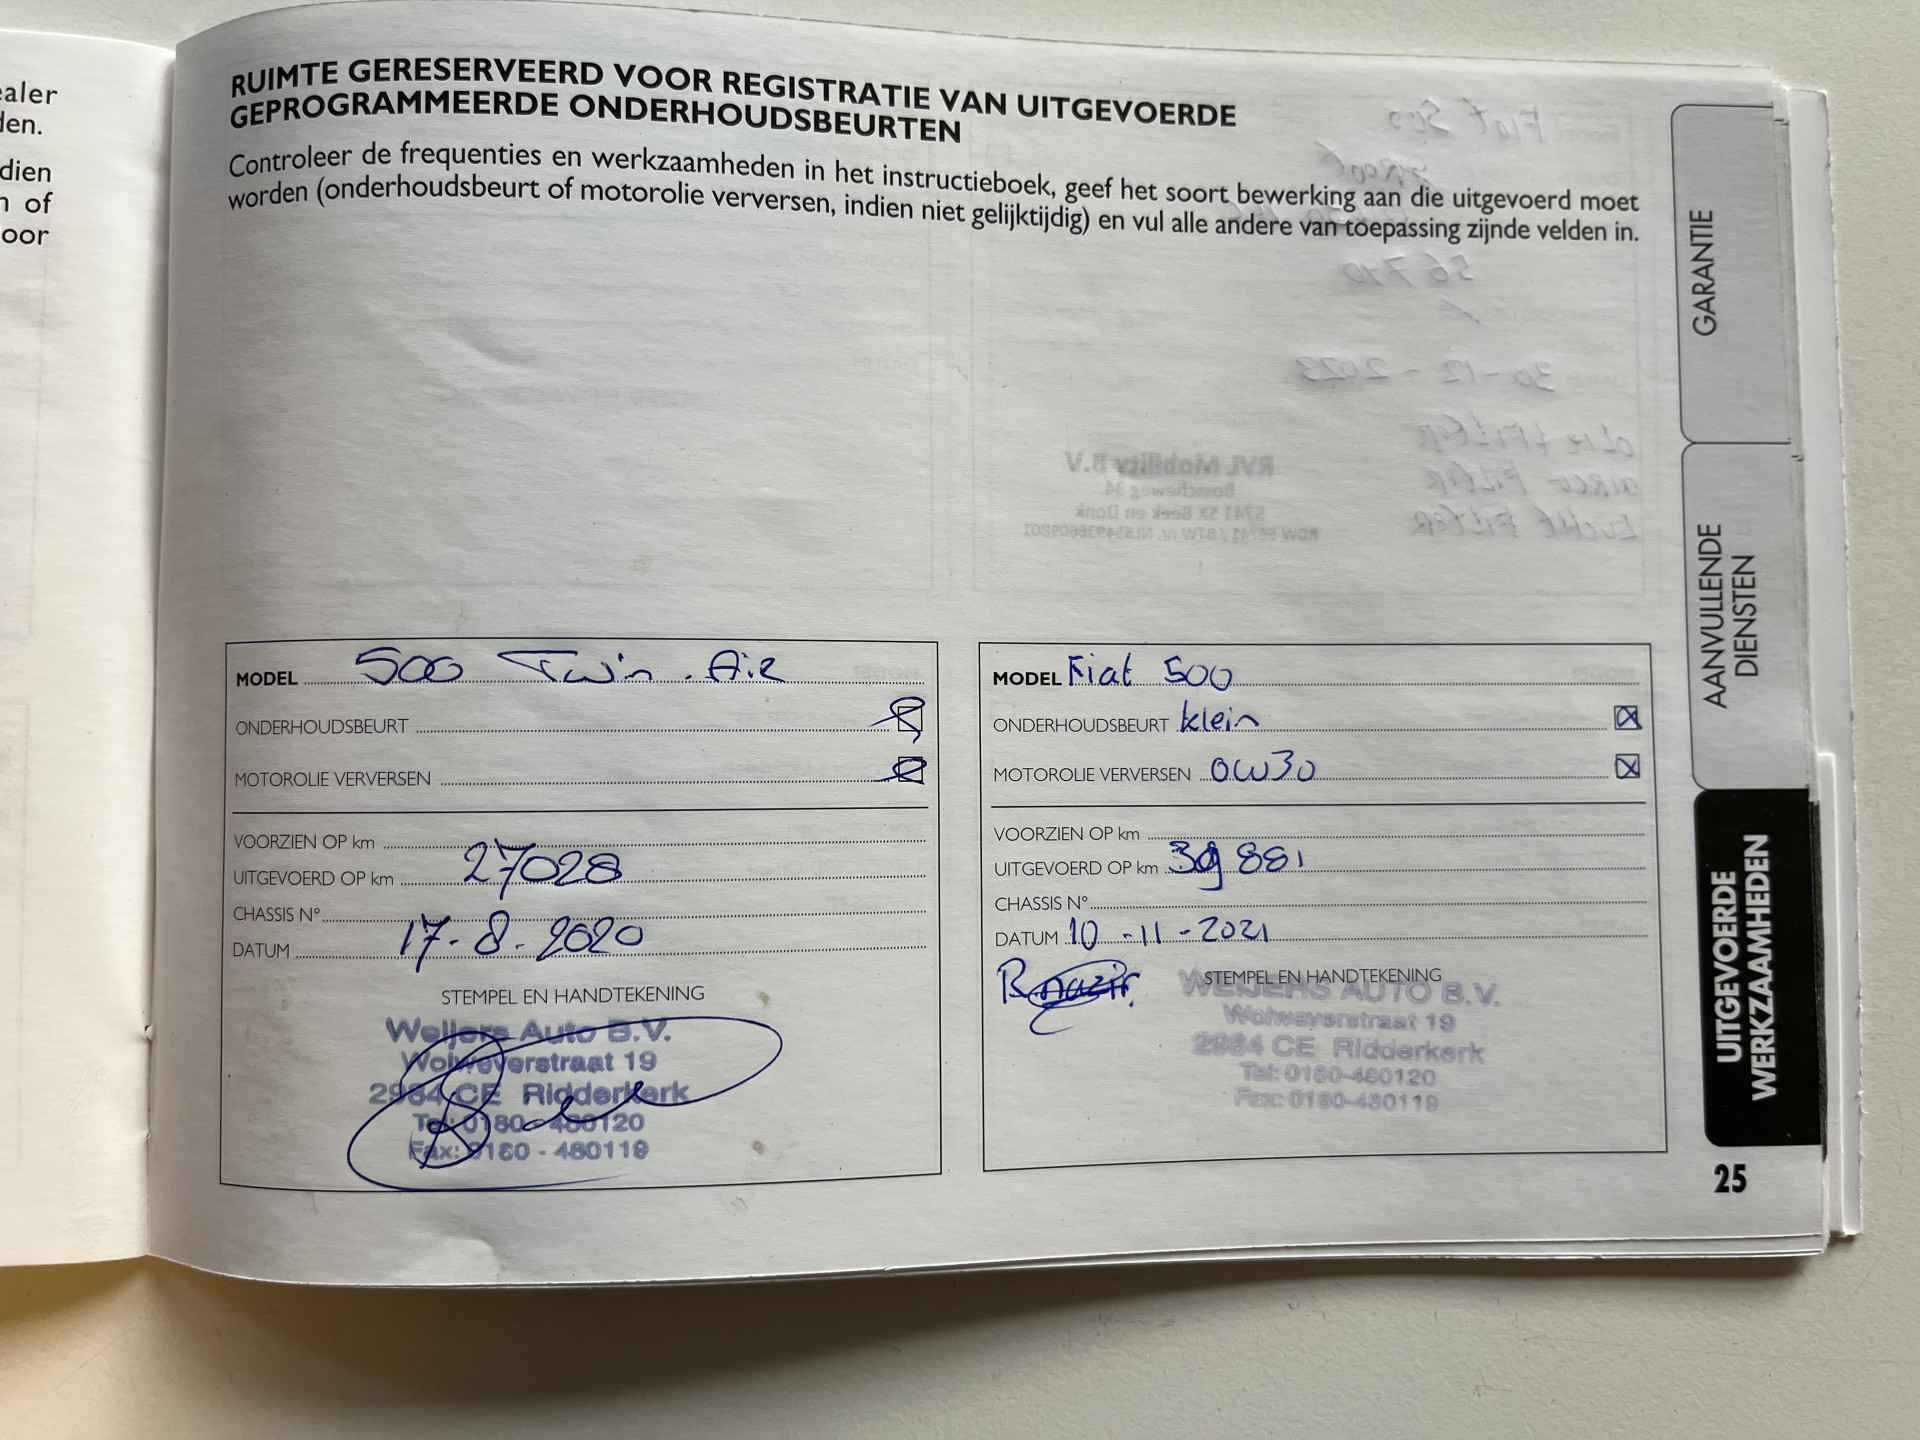 ealer
den.
dien
n of
oor
RUIMTE GERESERVEERD VOOR REGISTRATIE VAN UITGEVOERDE
GEPROGRAMMEERDE ONDERHOUDSBEURTEN
Controleer de frequenties en werkzaamheden in het instructieboek, geef het soort bewerking aan die uitgevoerd moet
worden (onderhoudsbeurt of motorolie verversen, indien niet gelijktijdig) en vul alle andere van toepassing zijnde velden in.
MODEL 500 Twin. Air
ONDERHOUDSBEURT
MOTOROLIE VERVERSEN
VOORZIEN OP km
UITGEVOERD OP km 27028
CHASSIS N°
DATUM 17-8-2020
STEMPEL EN HANDTEKENING
Weijers Auto B.V.
Wolweverstraat 19
2984 CE Ridderkerk
Tel: 0180-480120
Fax: 0180 - 480119
MODEL Fiat 500
ONDERHOUDSBEURT klein
MOTOROLIE VERVERSEN 0W30
VOORZIEN OP km
UITGEVOERD OP km 39881
CHASSIS N°
DATUM 10-11-2021
STEMPEL EN HANDTEKENING
WEIJERS AUTO B.V.
Wolweverstraat 19
2984 CE Ridderkerk
Tel: 0180-480120
Fax: 0180-480119
GARANTIE
AANVULLENDE
DIENSTEN
UITGEVOERDE
WERKZAAMHEDEN
25